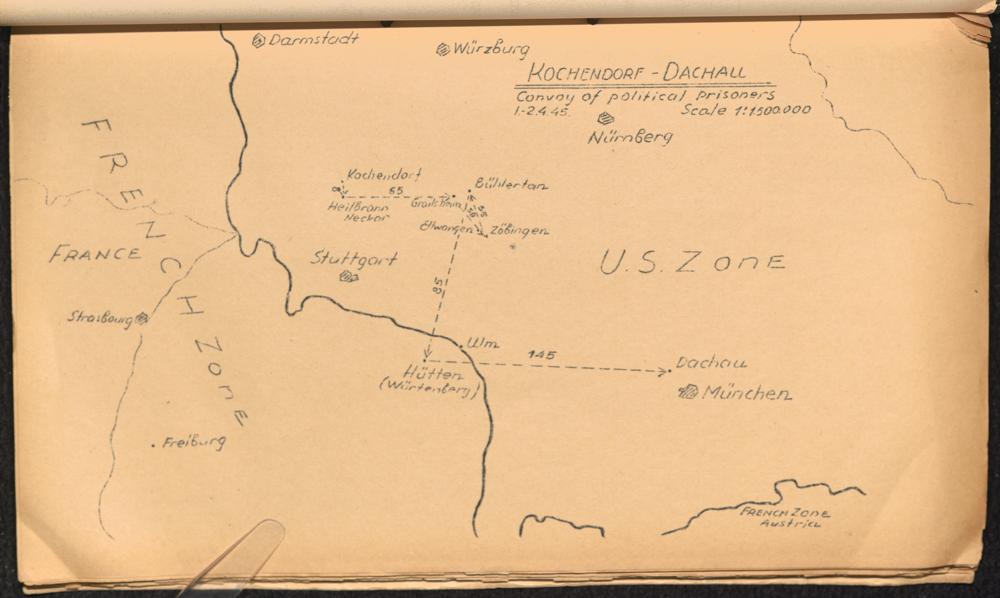 Darmstadt
Würzburg
KOCHENDORF - DACHAU
Convoy of political prisoners
1.-2.4.45. Scale 1:1500.000
Nürnberg
FRENCH ZONE
Kochendorf
8
65
Heilbronn
Neckar
Crailsheim
Bühlertan
55
56
Ellwangen
Zöbingen
FRANCE
Stuttgart
U.S. ZONE
Strasbourg
58
Ulm
145
Dachau
Hütten
(Würtenberg)
München
Freiburg
FRENCH ZONE
Austria